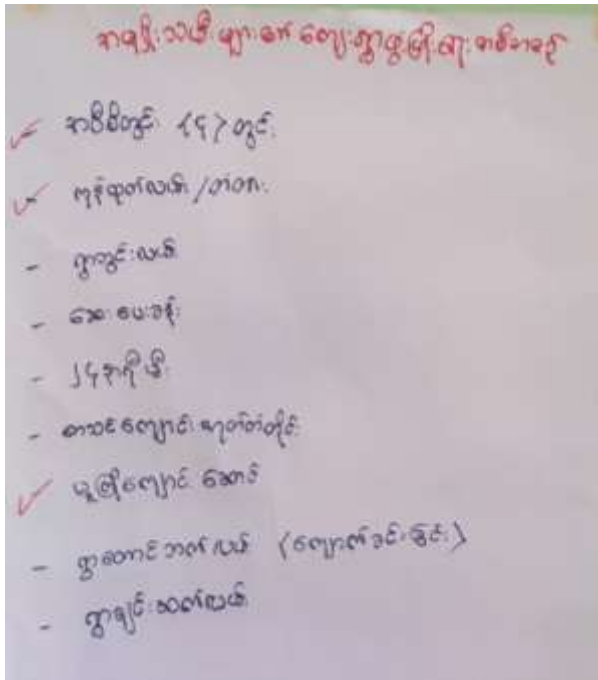 အမျိုးသမီးများ၏ ကျေးရွာဖွံ့ဖြိုးရေး အစီအစဉ်
အဝီစိတွင်း (၄) တွင်း
ကုန်ထုတ်လမ်း / တံတား
- ရွာတွင်းလမ်း
- ဆေးပေးခန်း
- ၂၄ နာရီ မီး
- စာသင်ကျောင်း ဓာတ်တံတိုင်
မူကြိုကျောင်း ဆောင်
- ရွာတောင်ဘက်လမ်း (ကျောက်ခင်းခြင်း)
- ရွာချင်းဆက်လမ်း